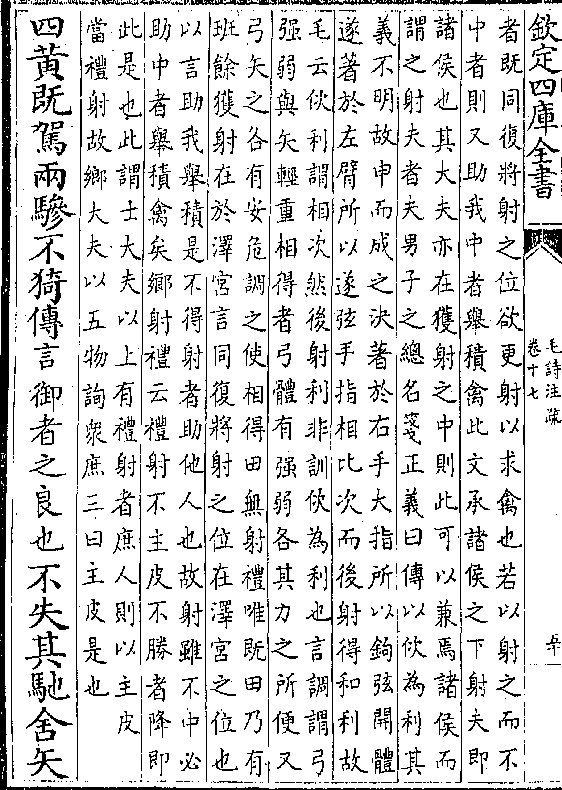 欽定四庫全書
毛詩注疏
卷十七
者既同復將射之位欲更射以求禽也若以射之而不
中者則又助我中者舉積禽此文承諸侯之下射夫即
諸侯也其大夫亦在獲射之中則此可以兼焉諸侯而
謂之射夫者夫男子之總名箋正義曰傳以佽為利其
義不明故申而成之決著於右手大指所以鉤弦開體
遂著於左臂所以遂弦手指相比次而後射得和利故
毛云佽利謂相次然後射利非訓佽為利也言調謂弓
强弱與矢輕重相得者弓體有强弱各其力之所便又
弓矢之各有安危調之使相得田無射禮唯既田乃有
班餘獲射在於澤宮言同復將射之位在澤宮之位也
以言助我舉積是不得射者助他人也故射雖不中必
助中者舉積禽矣鄉射禮云禮射不主皮不勝者降即
此是也此謂士大夫以上有禮射者庶人則以主皮
當禮射故鄉大夫以五物詢衆庶三曰主皮是也
四黄既駕兩驂不猗傳言御者之良也不失其馳舍矢